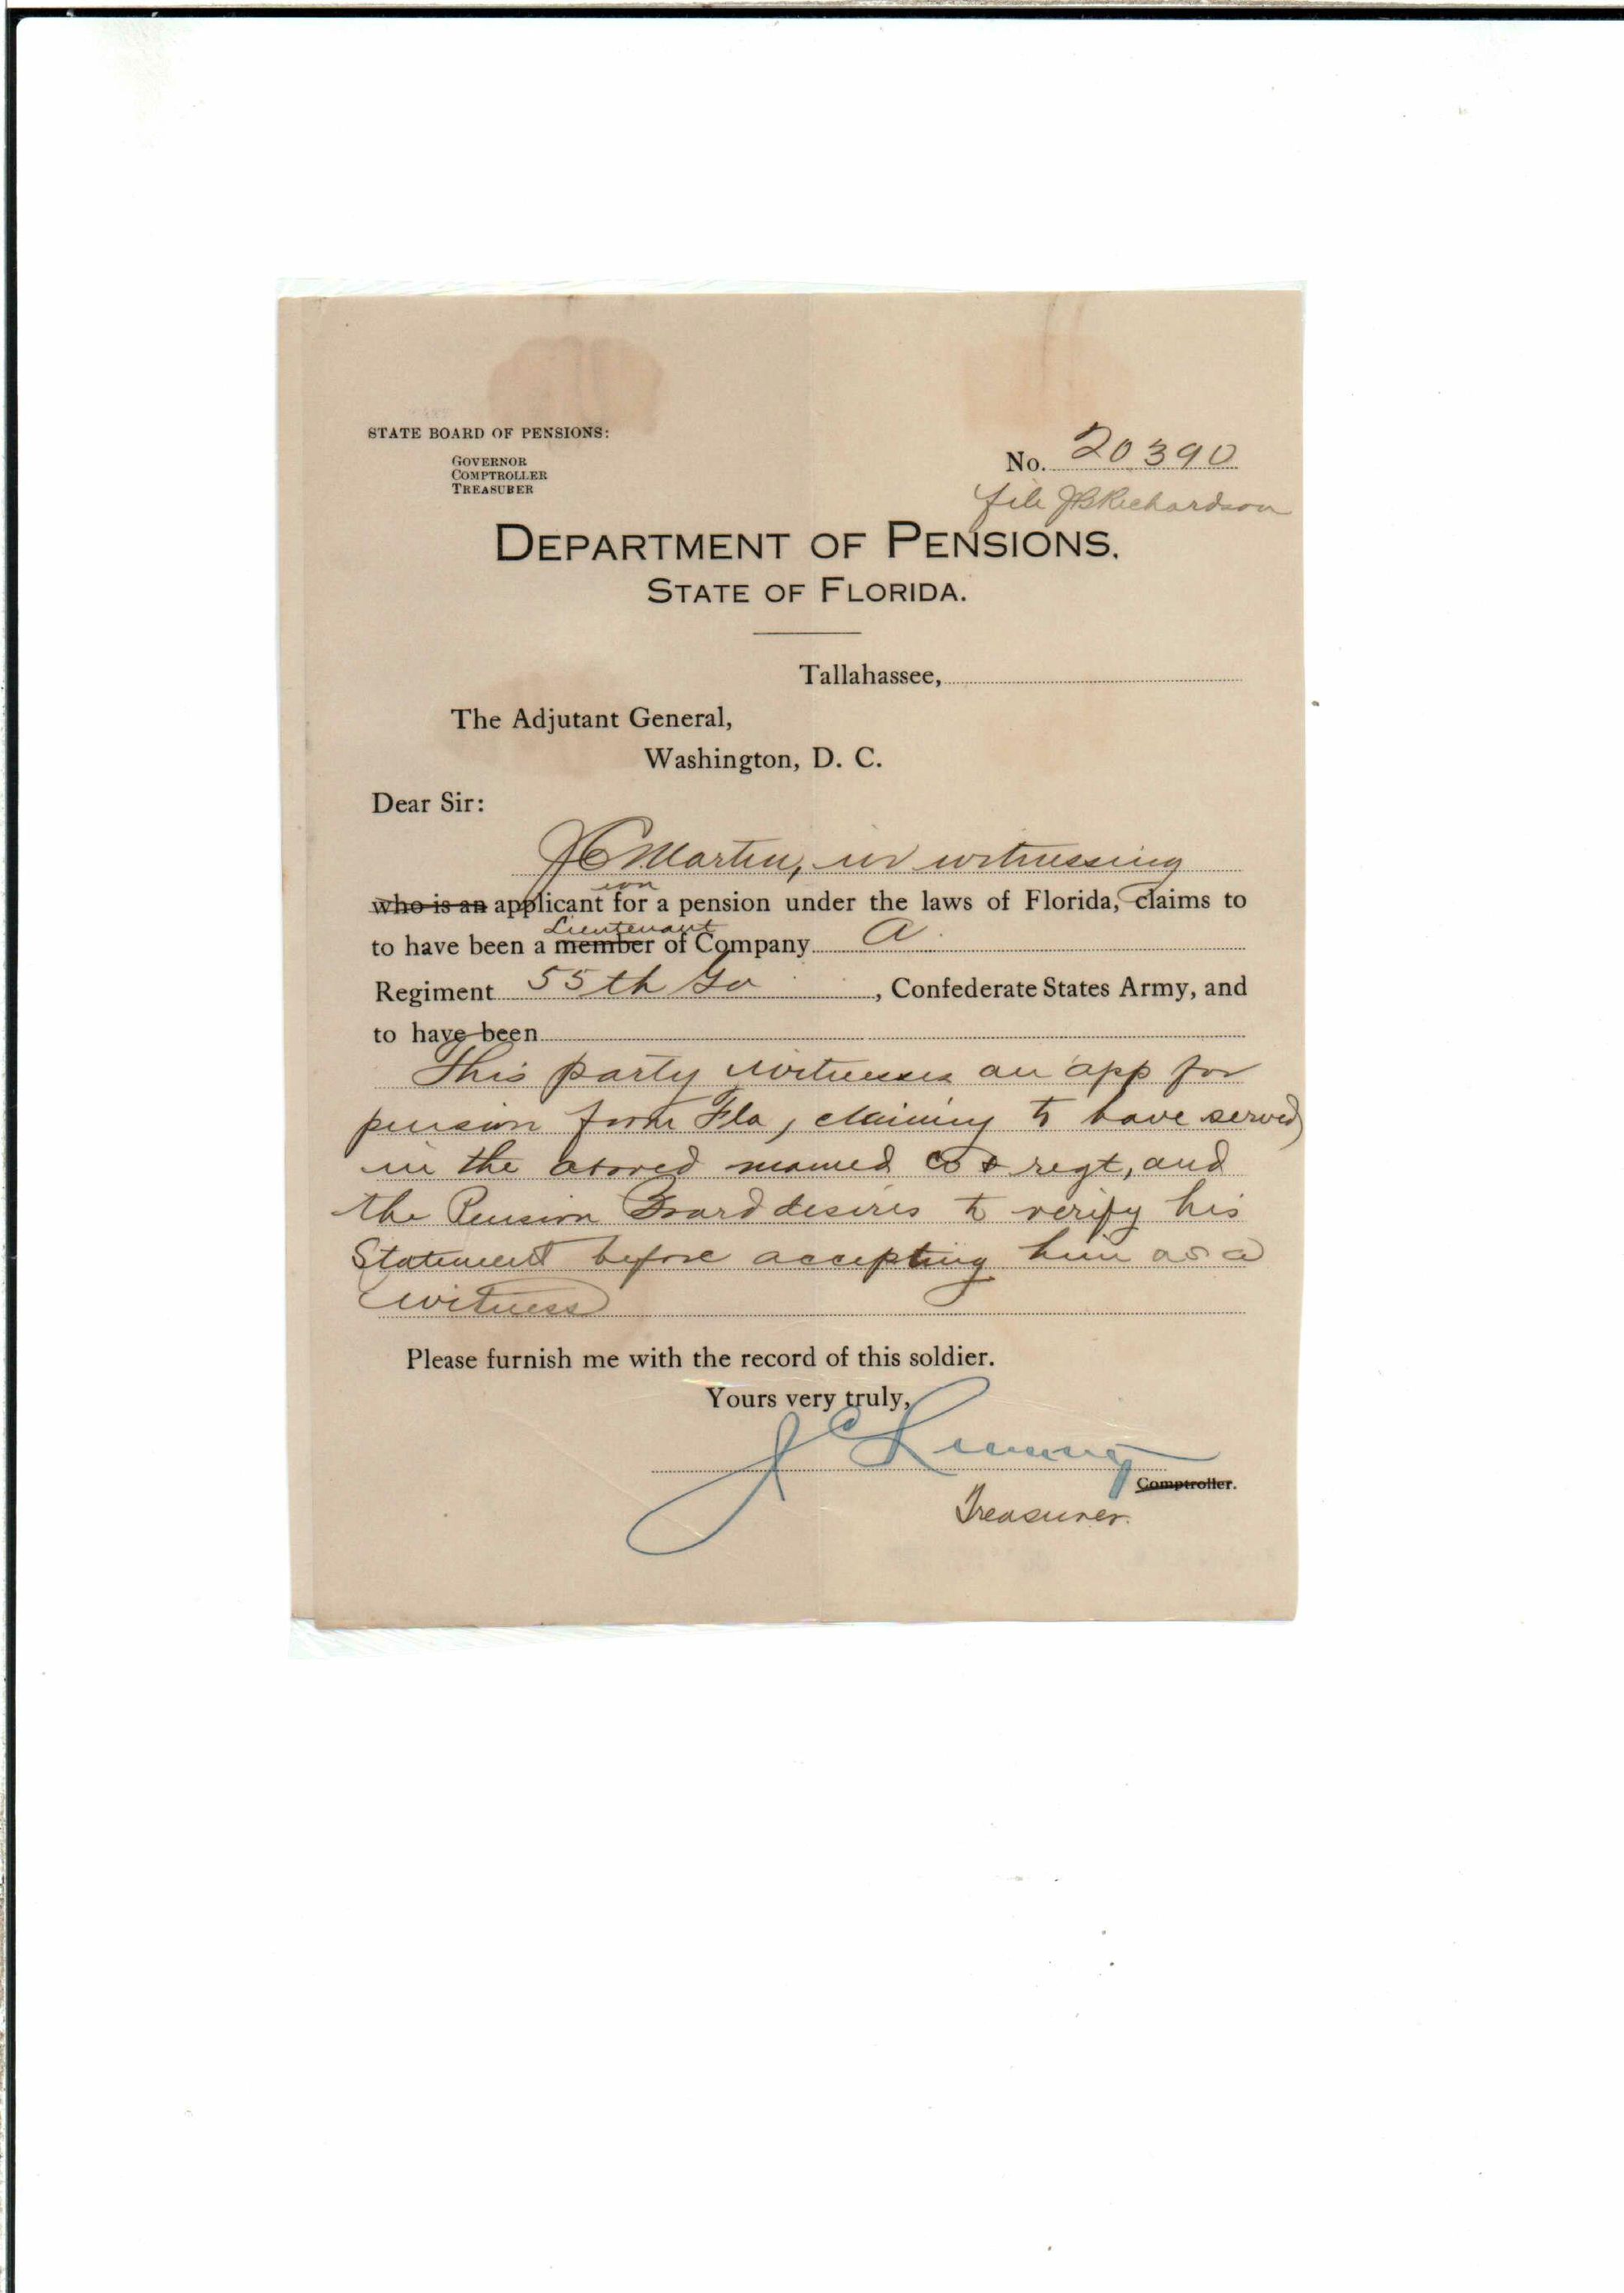 STATE BOARD OF PENSIONS:
GOVERNOR
COMPTROLLER
TREASURER
No. 20390
file JB Richardson
DEPARTMENT OF PENSIONS.
STATE OF FLORIDA.
Tallahassee,
The Adjutant General,
Washington, D. C.
Dear Sir:
JC Martin, in witnessing
ion
who is an applicant for a pension under the laws of Florida, claims to
Lieutenant
to have been a member of Company A.
Regiment 55th Ga, Confederate States Army, and
to have been
This party witnesses an app for
pension from Fla, claiming to have served
in the above named Co & regt, and
the Pension Board desires to verify his
Statement before accepting him as a
witness
Please furnish me with the record of this soldier.
Yours very truly,
J C Luning
Comptroller.
Treasurer.